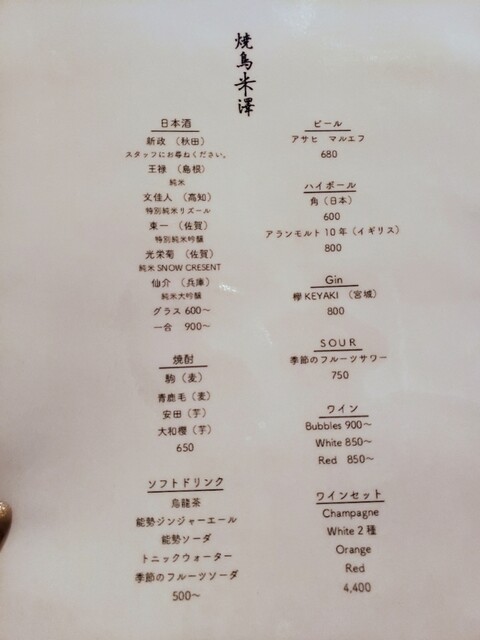 焼鳥米澤
日本酒
新政 （秋田）
スタッフにお尋ねください。
王禄 （島根）
純米
文佳人 （高知）
特別純米リズール
東一 （佐賀）
特別純米吟醸
光栄菊 （佐賀）
純米 SNOW CRESENT
仙介 （兵庫）
純米大吟醸
グラス 600～
一合 900～
焼酎
駒（麦）
青鹿毛（麦）
安田（芋）
大和櫻（芋）
650
ソフトドリンク
烏龍茶
能勢ジンジャーエール
能勢ソーダ
トニックウォーター
季節のフルーツソーダ
500～
ビール
アサヒ マルエフ
680
ハイボール
角（日本）
600
アランモルト 10 年（イギリス）
800
Gin
欅 KEYAKI （宮城）
800
SOUR
季節のフルーツサワー
750
ワイン
Bubbles 900～
White 850～
Red 850～
ワインセット
Champagne
White 2 種
Orange
Red
4,400